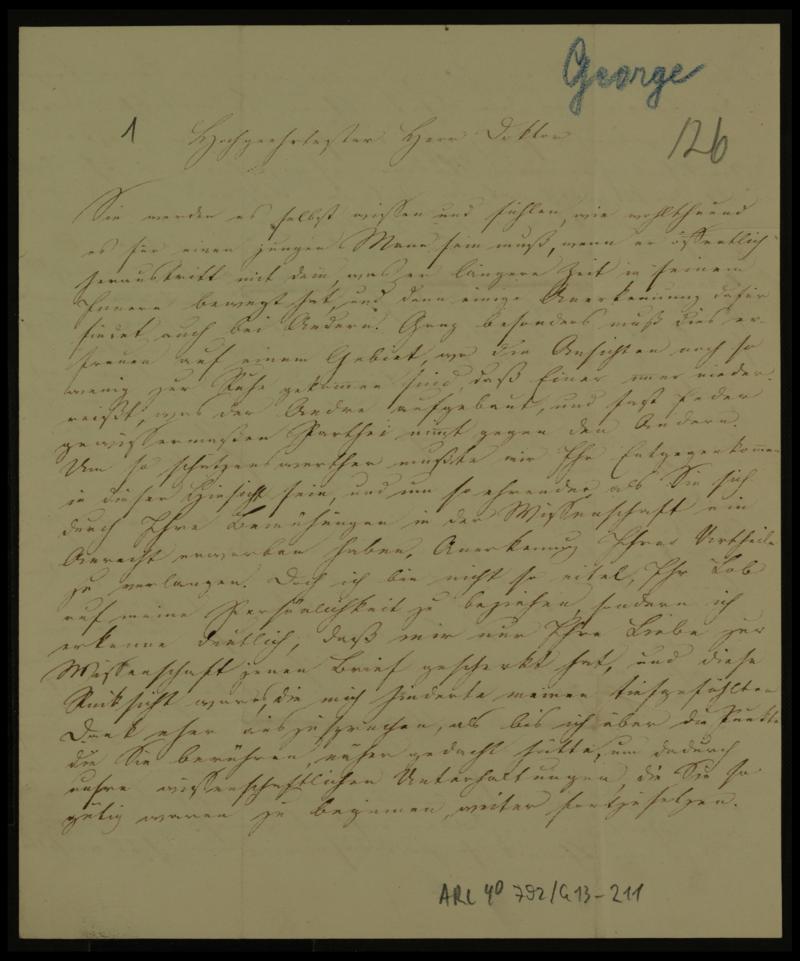 George
1 Hochgeehrtester Herr Doktor
126
Sie werden es selbst wissen und fühlen, wie wohlthuend
es für einen jungen Mann sein muß, wenn er öffentlich
heraustritt mit dem, was er längere Zeit in seinem
Innern bewegt hat, und dann einige Anerkennung dafür
findet auch bei Andern. Ganz besonders muß dies er-
freuen auf einem Gebiet, wo die Ansichten noch so
wenig zur Ruhe gekommen sind, daß Einer immer nieder-
reißt, was der Andre aufgebaut, und fast Jeder
gewissermaßen Parthei nimmt gegen den Andern.
Um so schätzenswerther mußte mir Ihr Entgegenkommen
in dieser Hinsicht sein, und um so ehrender, als Sie sich
durch Ihre Bemühungen in der Wissenschaft ein
Anrecht erworben haben, Anerkennung Ihres Urtheils
zu verlangen. Doch ich bin nicht so eitel, Ihr Lob
auf meine Persönlichkeit zu beziehen, sondern ich
erkenne deutlich, daß mir nur Ihre Liebe zur
Wissenschaft jenen Brief geschenkt hat, und diese
Rücksicht war es, die mich hinderte meinen tiefgefühlten
Dank eher auszusprechen, als bis ich über die Punkte
die Sie berühren, näher gedacht hätte, um dadurch
unsre wissenschaftlichen Unterhaltungen, die Sie so
gütig waren zu beginnen, weiter fortzusetzen.
ARC 4° 792/G13-211